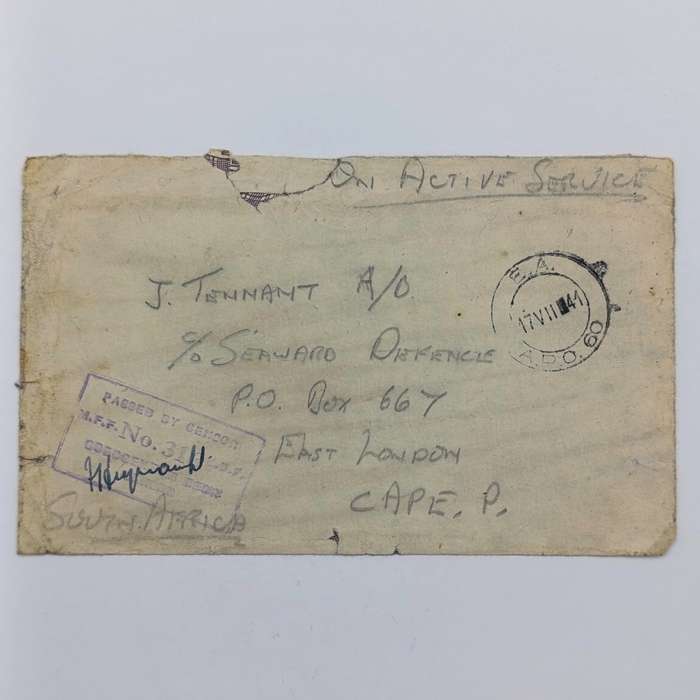 On Active Service
E.A.
17 VII 41
A.P.O. 60
J. Tennant A/B
c/o Seaward Defence
P.O. Box 667
East London
Cape. P.
South Africa
PASSED BY CENSOR
No. 31